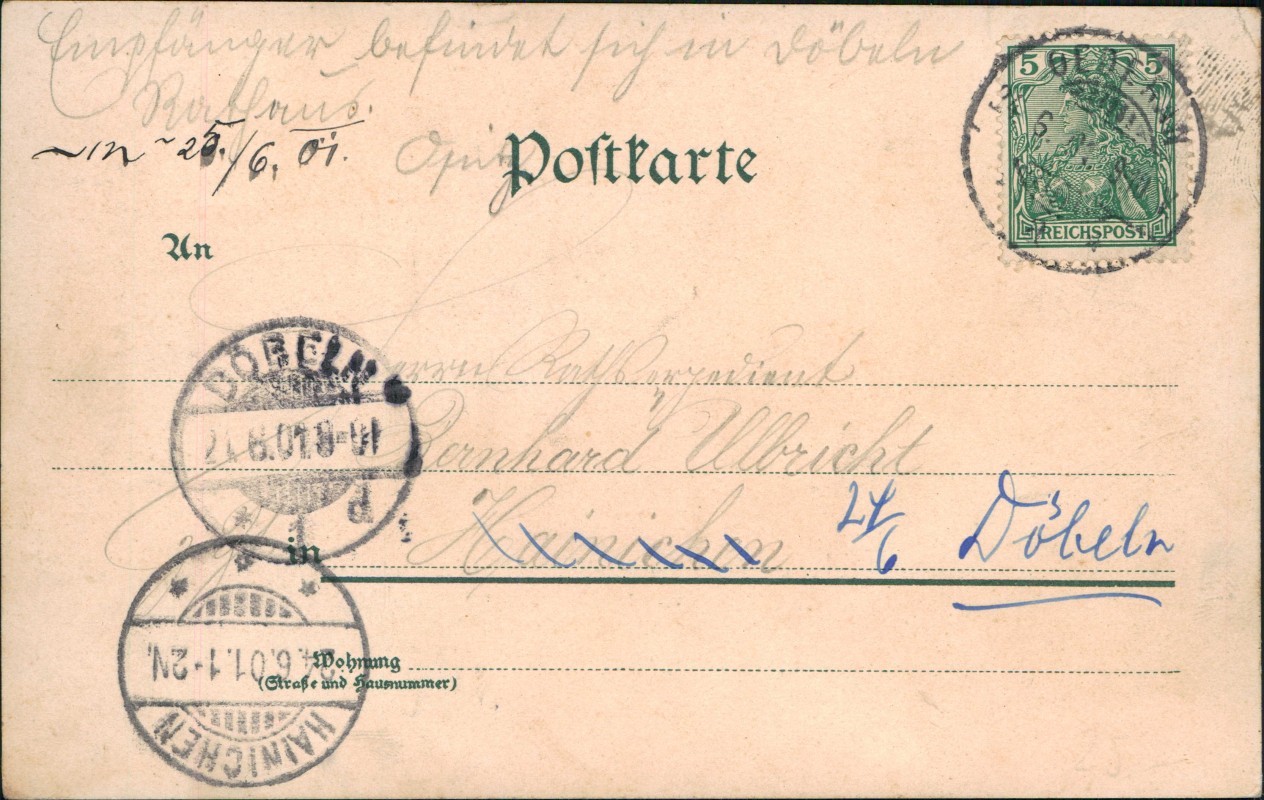 Empfänger befindet sich in Döbeln
Rathaus.
25./6. 01.
Opitz
Postkarte
5 5
REICHSPOST
An
Herrn Rathsexpedient
Bernhard Ulbricht
in Hainichen
24/6 Döbeln
Wohnung
(Straße und Hausnummer)
DÖBELN
HAINICHEN
24.6.01.1-2N.